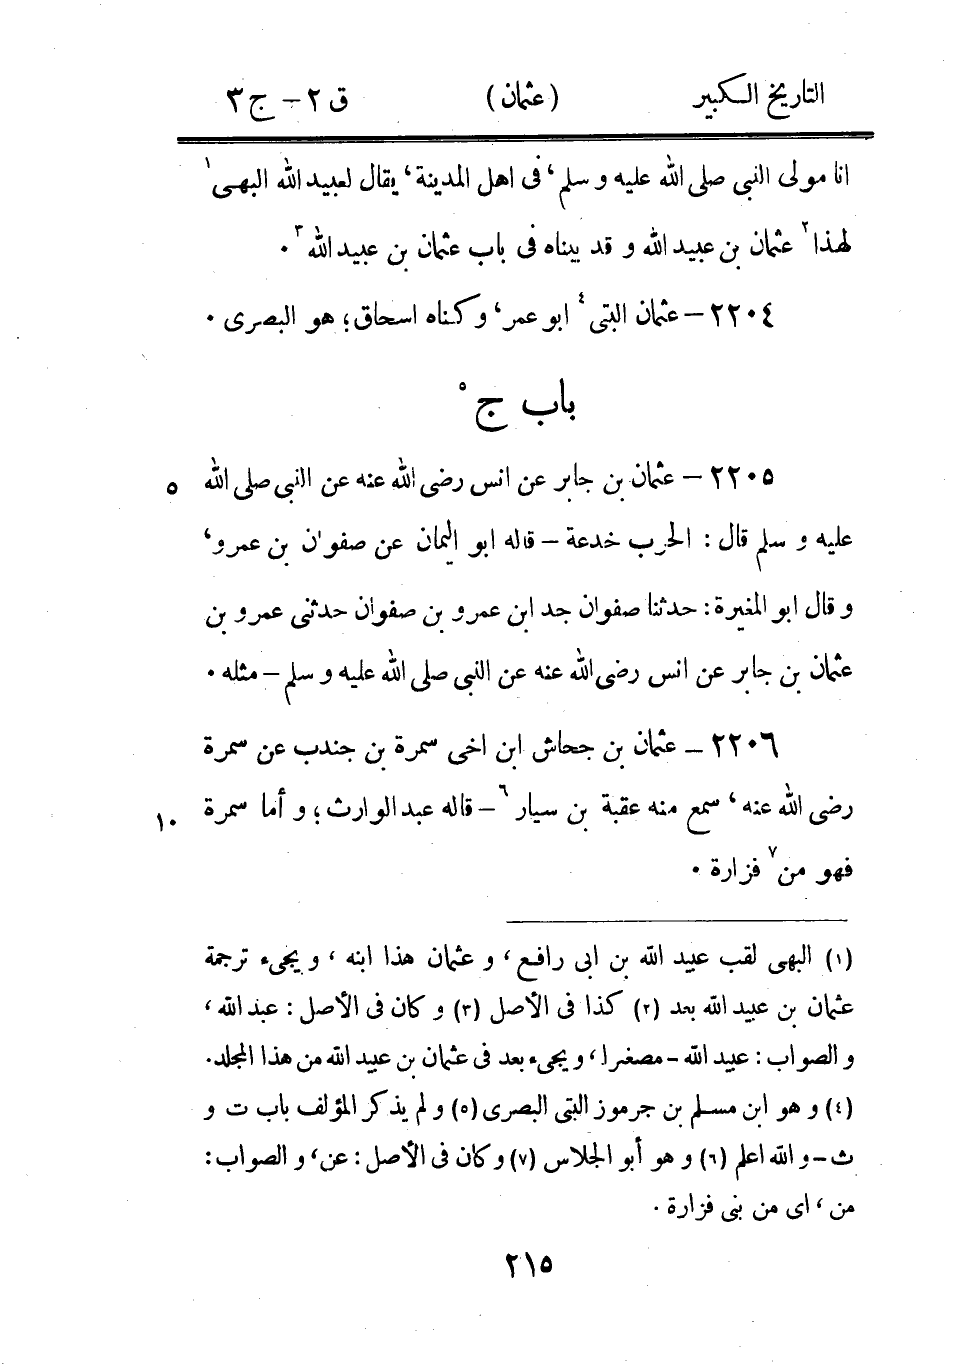 التاريخ الكبير (عثمان) ق ٢ – ج ٣
انا مولى النبى صلى الله عليه و سلم، فى اهل المدينة، يقال لعبيد الله البهى ١
لهذا ٢ عثمان بن عبيد الله و قد بيناه فى باب عثمان بن عبيد الله ٣ ٠
٢٢٠٤ – عثمان البتى ٤ ابو عمر، و كناه اسحاق؛ هو البصرى ٠
باب ج ٥
٢٢٠٥ – عثمان بن جابر عن انس رضى الله عنه عن النبى صلى الله ٥
عليه و سلم قال: الحرب خدعة – قاله ابو اليمان عن صفوان بن عمرو،
و قال ابو المغيرة: حدثنا صفوان جد ابن عمرو بن صفوان حدثنى عمرو بن
عثمان بن جابر عن انس رضى الله عنه عن النبى صلى الله عليه و سلم – مثله ٠
٢٢٠٦ – عثمان بن جحاش ابن اخى سمرة بن جندب عن سمرة
رضى الله عنه، سمع منه عقبة بن سيار ٦ – قاله عبد الوارث؛ و أما سمرة ١٠
فهو من ٧ فزارة ٠
(١) البهى لقب عبيد الله بن ابى رافع، و عثمان هذا ابنه، و يجىء ترجمة
عثمان بن عبيد الله بعد (٢) كذا فى الأصل (٣) و كان فى الأصل: عبد الله،
و الصواب: عبيد الله – مصغرا، و يجىء بعد فى عثمان بن عبيد الله من هذا المجلد.
(٤) و هو ابن مسلم بن جرموز البتى البصرى (٥) و لم يذكر المؤلف باب ت و
ث – و الله اعلم (٦) و هو أبو الجلاس (٧) و كان فى الأصل: عن، و الصواب:
من، اى من بنى فزارة ٠
٢١٥